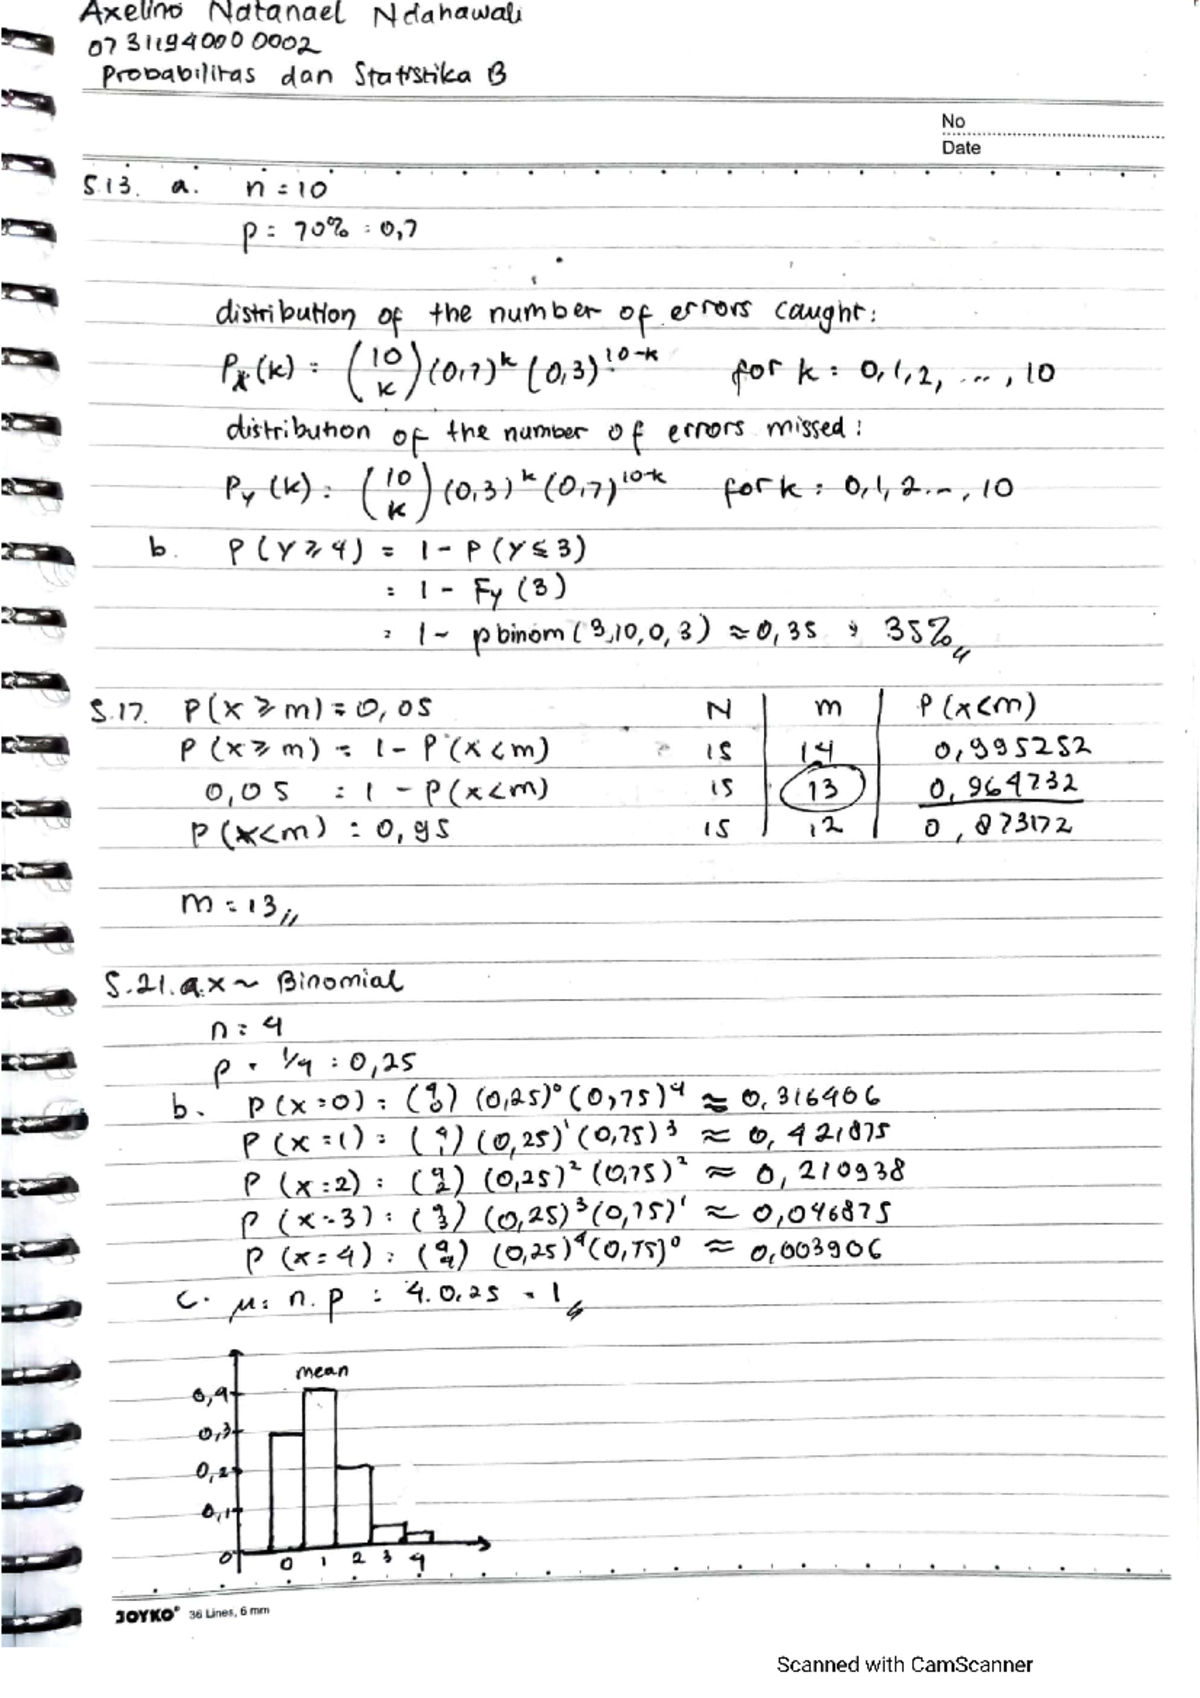 Axelino Natanael Ndahawali
07311940000002
Probabilitas dan Statistika B
No
Date
5.13. a. n = 10
p = 70% = 0,7
distribution of the number of errors caught:
Px(k) = (10 k) (0,7)^k (0,3)^10-k for k = 0,1,2, ..., 10
distribution of the number of errors missed:
Py(k) = (10 k) (0,3)^k (0,7)^10-k for k = 0,1,2..., 10
b. P(Y ≥ 4) = 1 - P(Y ≤ 3)
= 1 - Fy(3)
= 1 - pbinom(3,10,0,3) ≈ 0,35 → 35%
5.17. P(x ≥ m) = 0,05 N | m | P(x<m)
P(x ≥ m) = 1 - P(x<m) 15 | 14 | 0,995252
0,05 = 1 - P(x<m) 15 | 13 | 0,964732
P(x<m) = 0,95 15 | 12 | 0,873172
m = 13
5.21. a. x ~ Binomial
n = 4
p = 1/4 = 0,25
b. P(x=0) = (4 0) (0,25)^0 (0,75)^4 ≈ 0,316406
P(x=1) = (4 1) (0,25)^1 (0,75)^3 ≈ 0,421875
P(x=2) = (4 2) (0,25)^2 (0,75)^2 ≈ 0,210938
P(x=3) = (4 3) (0,25)^3 (0,75)^1 ≈ 0,046875
P(x=4) = (4 4) (0,25)^4 (0,75)^0 ≈ 0,003906
c. μ = n.p = 4.0,25 = 1
mean
0,4
0,3
0,2
0,1
0
0 1 2 3 4
JOYKO® 36 Lines, 6 mm
Scanned with CamScanner